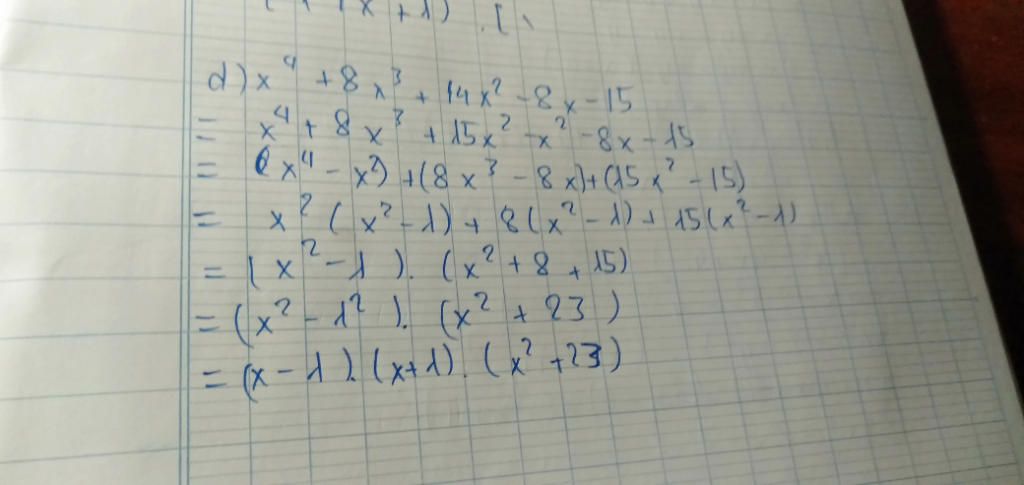 d) x⁴ + 8x³ + 14x² - 8x - 15
= x⁴ + 8x³ + 15x² - x² - 8x - 15
= (x⁴ - x²) + (8x³ - 8x) + (15x² - 15)
= x² (x² - 1) + 8(x² - 1) + 15(x² - 1)
= (x² - 1). (x² + 8 + 15)
= (x² - 1²). (x² + 23)
= (x - 1). (x + 1). (x² + 23)